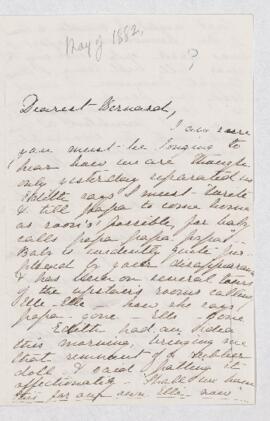 May 9 1882.
?
Dearest Bernard,
I am sure
you must be longing to
hear how we are though
only yesterday separated us
Edith says I must "wite
& tell Papa to come home
as soon's possible for baby
calls papa papa papa"–
Baby is evidently quite
by your disappearance
& has been on several tours
of the upstairs rooms calling
Elle–Elle – how she says
papa – gone – Ello – Gone
Edith had an idea
this morning, bringing me
that remnant of a
doll & said patting it
affectionately – "Shall us have
this for our own Ello now